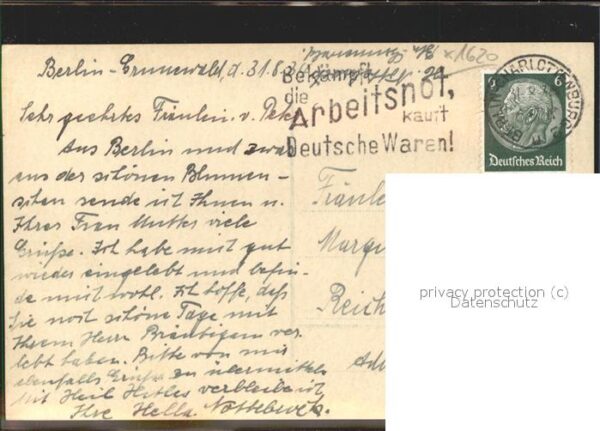 Berlin-Grunewald, d. 31.8.34
x 1620
Bekämpft
die
Arbeitsnot,
kauft
Deutsche Waren!
BERLIN-CHARLOTTENBURG
6 6
Deutsches Reich
Sehr geehrtes Fräulein v.
Aus Berlin und zwar
aus der schönen Blumen-
schen sende ich Ihnen u.
Ihrer Frau Mutter viele
Grüße. Ich habe mich gut
wieder eingelebt und befin-
de mich wohl. Ich hoffe, daß
Sie noch schöne Tage mit
Ihrem Herrn Bräutigam ver-
lebt haben. Bitte von mir
ebenfalls Grüße zu übermitteln
Mit Heil Hitler verbleibe ich
Ihre Hella
Fräule
Margu
Reich
privacy protection (c)
Datenschutz